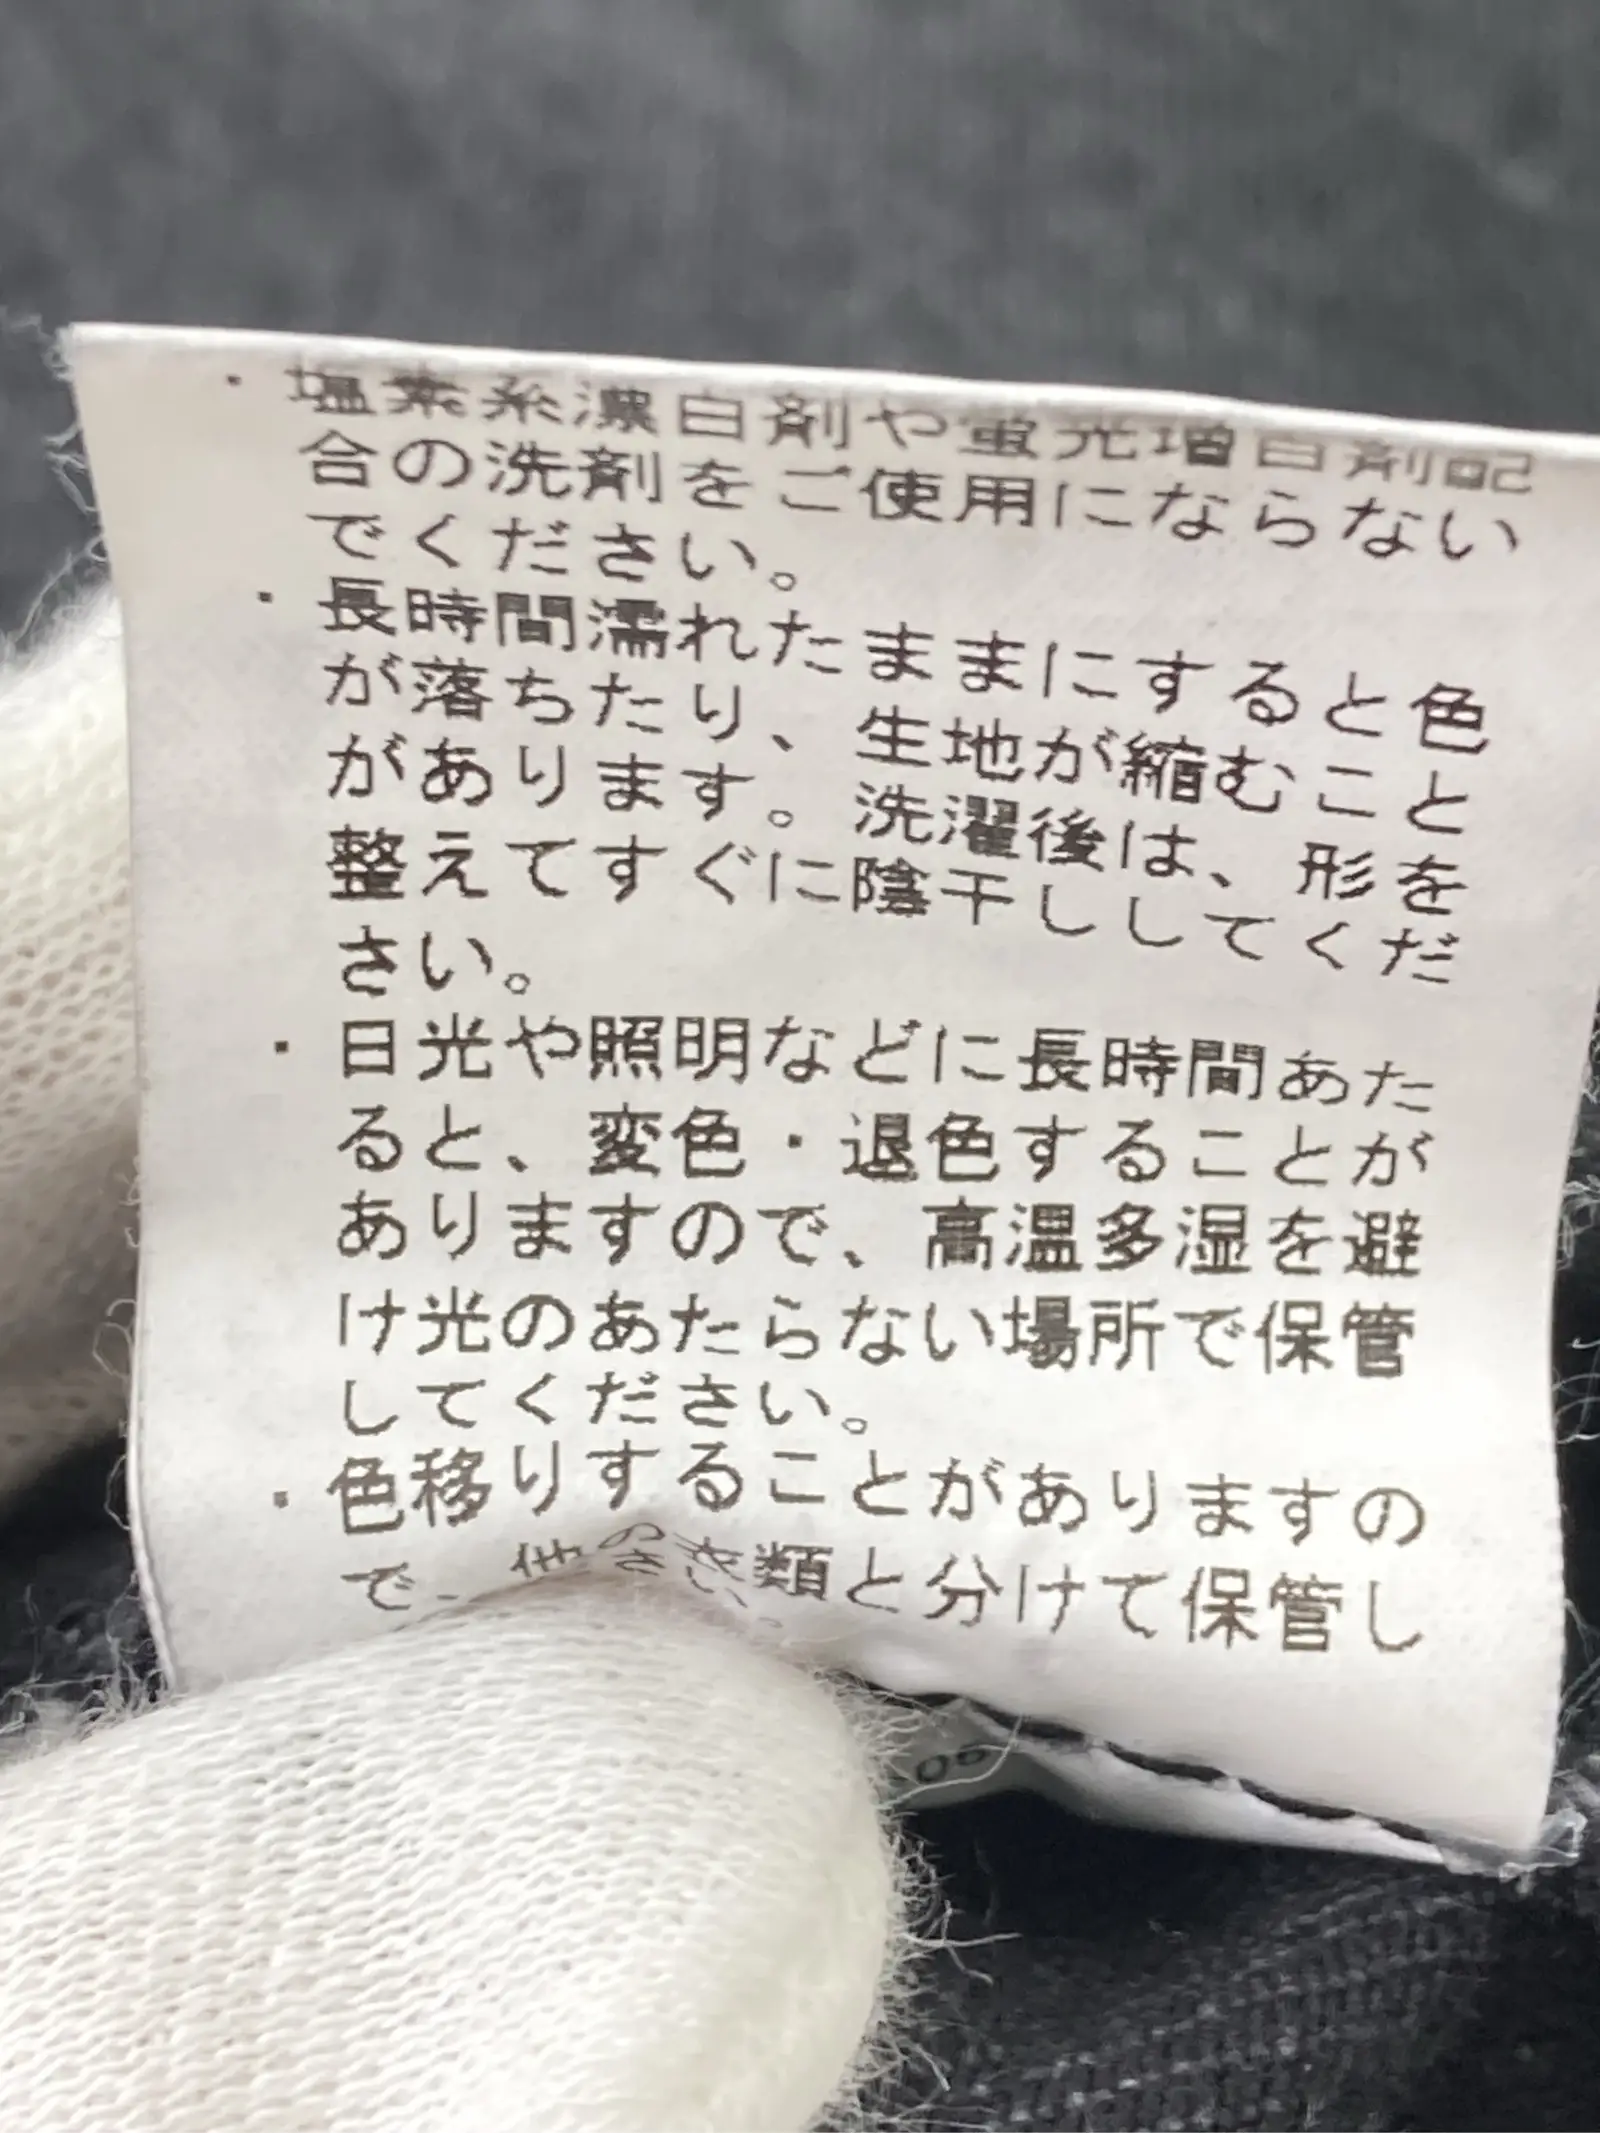 ・塩素系漂白剤や蛍光増白剤配
合の洗剤をご使用にならない
でください。
・長時間濡れたままにすると色
が落ちたり、生地が縮むこと
があります。洗濯後は、形を
整えてすぐに陰干ししてくだ
さい。
・日光や照明などに長時間あた
ると、変色・退色することが
ありますので、高温多湿を避
け光のあたらない場所で保管
してください。
・色移りすることがありますの
で、他の衣類と分けて保管し
さい。